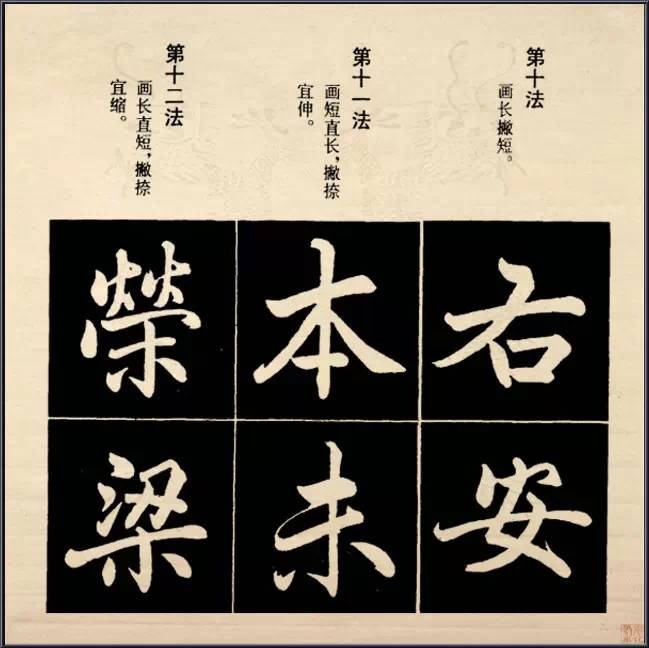 第十法
画长撇短。
第十一法
画短直长，撇捺
宜伸。
第十二法
画长直短，撇捺
宜缩。
右
安
本
未
榮
梁